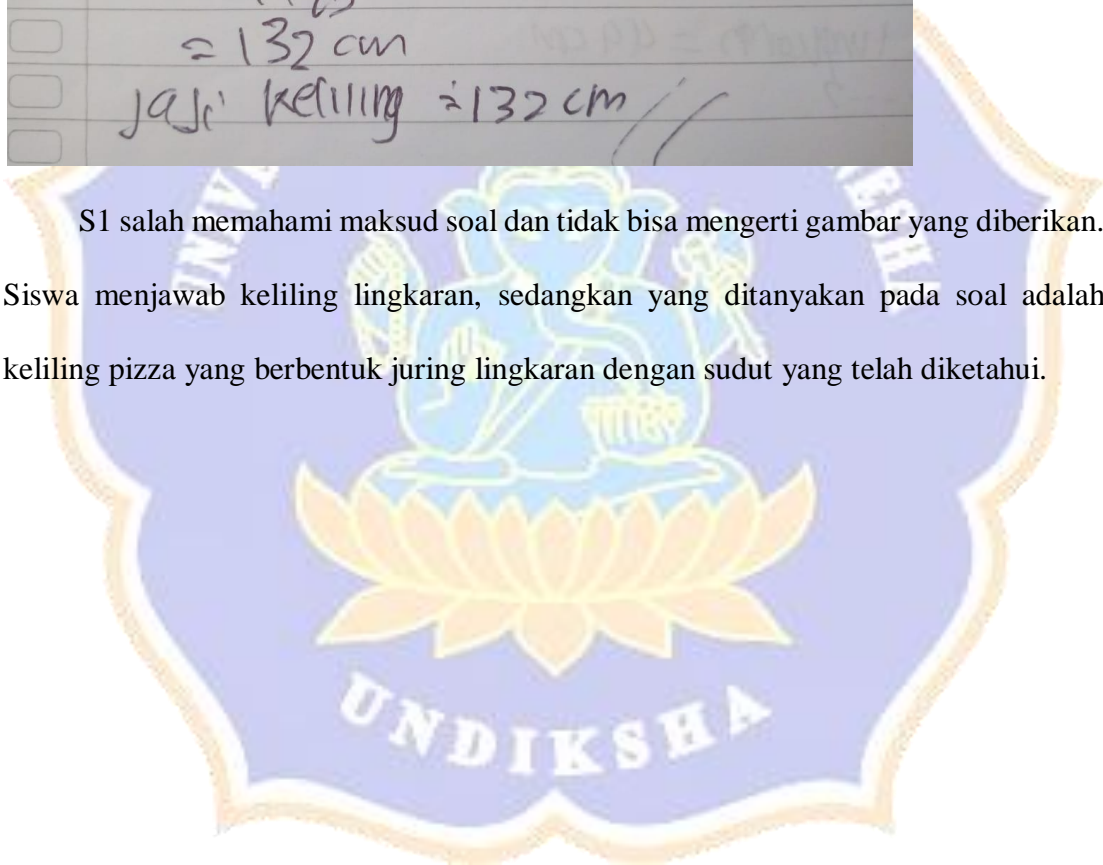 = 132 cm
jadi keliling = 132 cm
S1 salah memahami maksud soal dan tidak bisa mengerti gambar yang diberikan.
Siswa menjawab keliling lingkaran, sedangkan yang ditanyakan pada soal adalah
keliling pizza yang berbentuk juring lingkaran dengan sudut yang telah diketahui.
UNDIKSHA